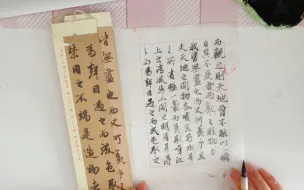 而觀之則天地曾不能以一瞬
自其不變者而觀之則物
我皆無盡也而又何羨乎且
夫天地之間物各有主
之所有雖一毫而莫取
上之清風與山間之明月耳得
之為聲目遇之而成色取
皆無盡也而又何羨乎
為聲目遇之而成色取
禁用之不竭是造物者